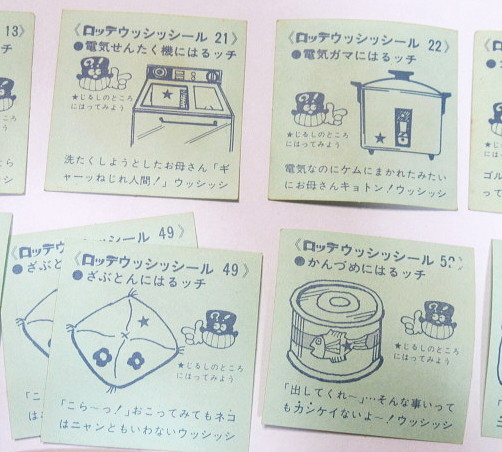 13》
《ロッテウッシッシール 21》
●電気せんたく機にはるッチ
★じるしのところ
にはってみよう
洗たくしようとしたお母さん「ギ
ャーッねじれ人間!」ウッシッシ
《ロッテウッシッシール 22》
●電気ガマにはるッチ
★じるしのところ
にはってみよう
電気なのにケムにまかれたみたい
にお母さんキョトン!ウッシッシ
49》
●ざぶと
「こ
は
《ロッテウッシッシール 49》
●ざぶとんにはるッチ
★じるしのところ
にはってみよう
「こら〜っ!」おこってみてもネコ
はニャンともいわないウッシッシ
《ロッテウッシッシール 5
●かんづめにはるッチ
★じるしのところ
にはってみよう
「出してくれ〜」…そんな事いって
もカンケイないよ〜!ウッシッシ